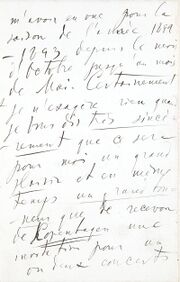 m'avoir en vue pour la
saison de l'année 1892
– 1893 depuis le mois
d'Octobre jusqu'au mois
de Mai. Certainement
je n'exagère rien que
je vous dis très sincè-
rement que ce sera
pour moi un grand
plaisir et en même
temps un grand hon-
neur que de recevoir
de Kopenhagen une
invitation pour un
ou deux concerts